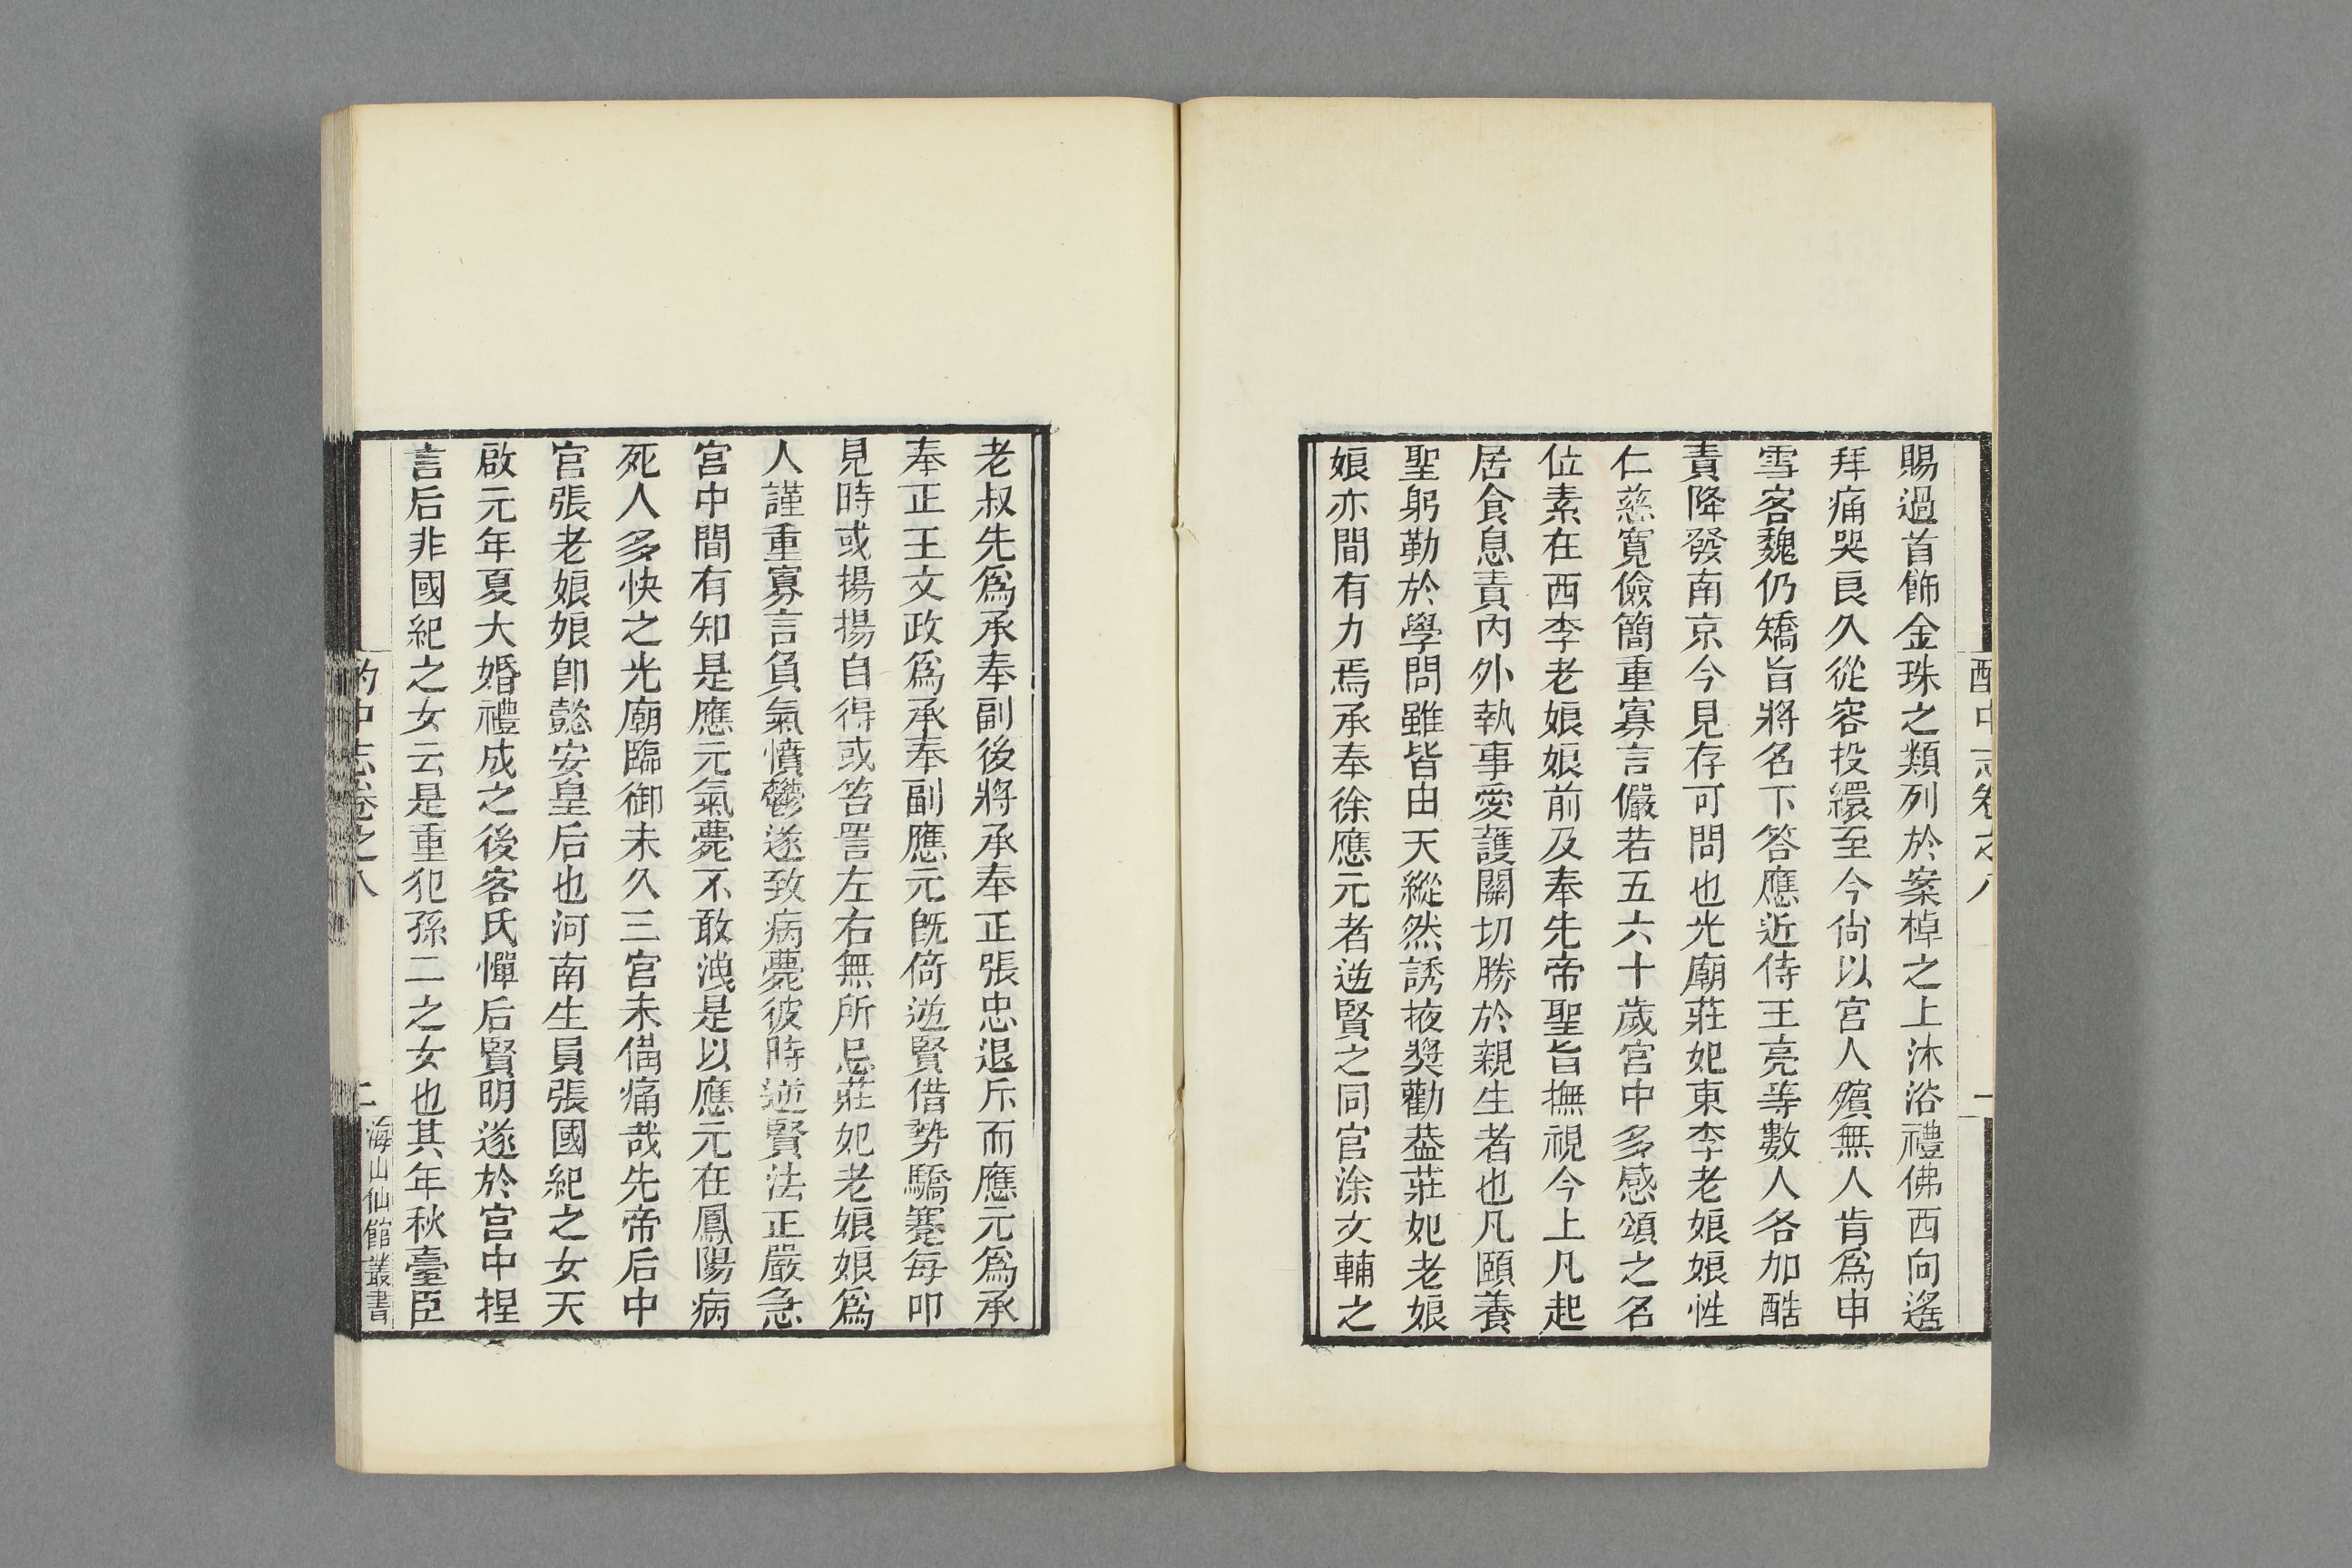 酌中志卷之八 一
賜過首飾金珠之類列於案棹之上沐浴禮佛西向遙
拜痛哭良久從容投繯至今尙以宮人殯無人肯爲申
雪客魏仍矯旨將名下答應近侍王亮等數人各加酷
責降發南京今見存可問也光廟莊妃東李老娘娘性
仁慈寬儉簡重寡言儼若五六十歲宮中多感頌之名
位素在西李老娘娘前及奉先帝聖旨撫視今上凡起
居食息責內外執事愛護關切勝於親生者也凡頤養
聖躬勤於學問雖皆由天縱然誘掖奬勸葢莊妃老娘
娘亦間有力焉承奉徐應元者逆賢之同官涂文輔之
老叔先爲承奉副後將承奉正張忠退斥而應元爲承
奉正王文政爲承奉副應元旣倚逆賢借勢驕蹇每叩
見時或揚揚自得或笞詈左右無所忌莊妃老娘娘爲
人謹重寡言負氣憤鬱遂致病薨彼時逆賢法正嚴急
宮中間有知是應元氣薨不敢洩是以應元在鳳陽病
死人多快之光廟臨御未久三宮未備痛哉先帝后中
宮張老娘娘卽懿安皇后也河南生員張國紀之女天
啟元年夏大婚禮成之後客氏憚后賢明遂於宮中捏
言后非國紀之女云是重犯孫二之女也其年秋臺臣
酌中志卷之八 二 海山仙館叢書